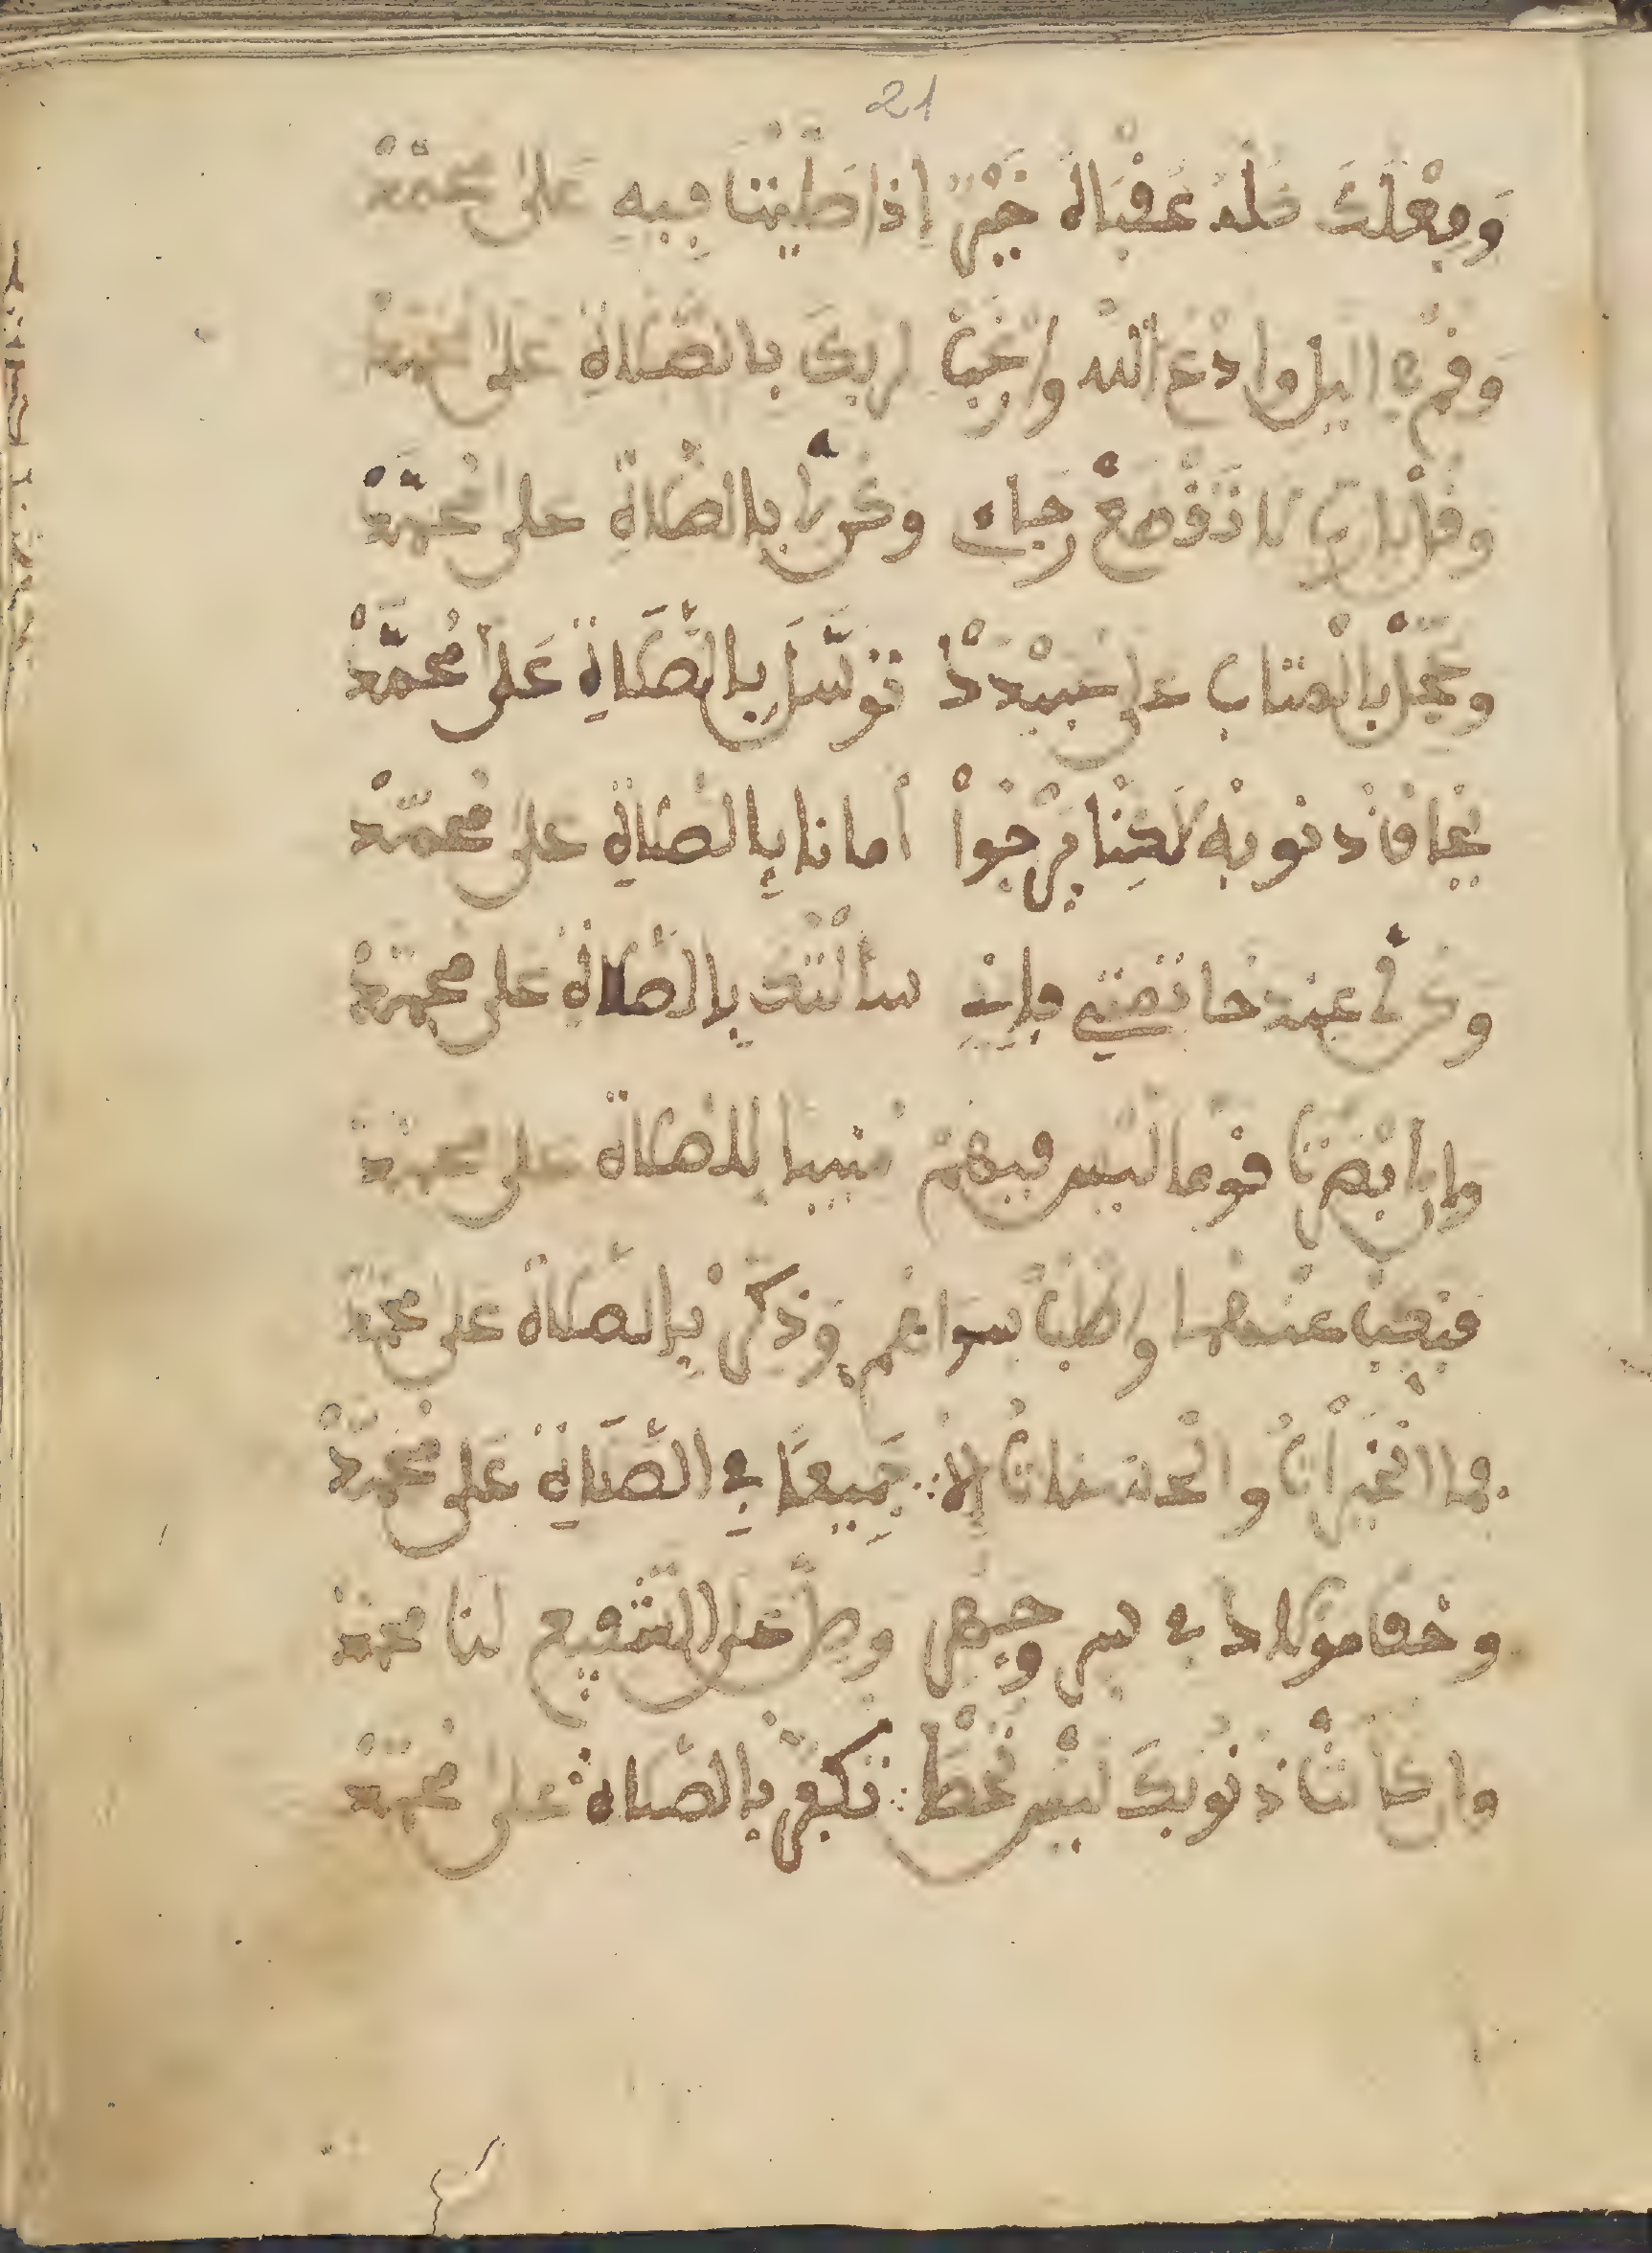 21
وفعلك كله عقباله خير إذا صليتا فيه على محمد
وقم في اليل وادع الله وارغب لربك بالصلاة على محمد
وقل يارب لا تقطع رجاي وخر لي بالصلاة على محمد
وعجل بالمتاب على عبيدك توسل بالصلاة على محمد
يخاف ذنوبه لاكنا يرجوا أمانا بالصلاة على محمد
وكن لي عند خاتمتي فإني سألتك بالصلاة على محمد
وإن أبصرتا قوما ليس فيهم منيبا للصلاة على محمد
فبعد عنهما واطلب سواهم وذكر بالصلاة على محمد
فما الخيرات والحسنات إلا جميعا في الصلاة على محمد
وخف مولاك في سر وجهر وصل على الشفيع لنا محمد
وإن كانت ذنوبك ليس تحصى تكفر بالصلاة على محمد